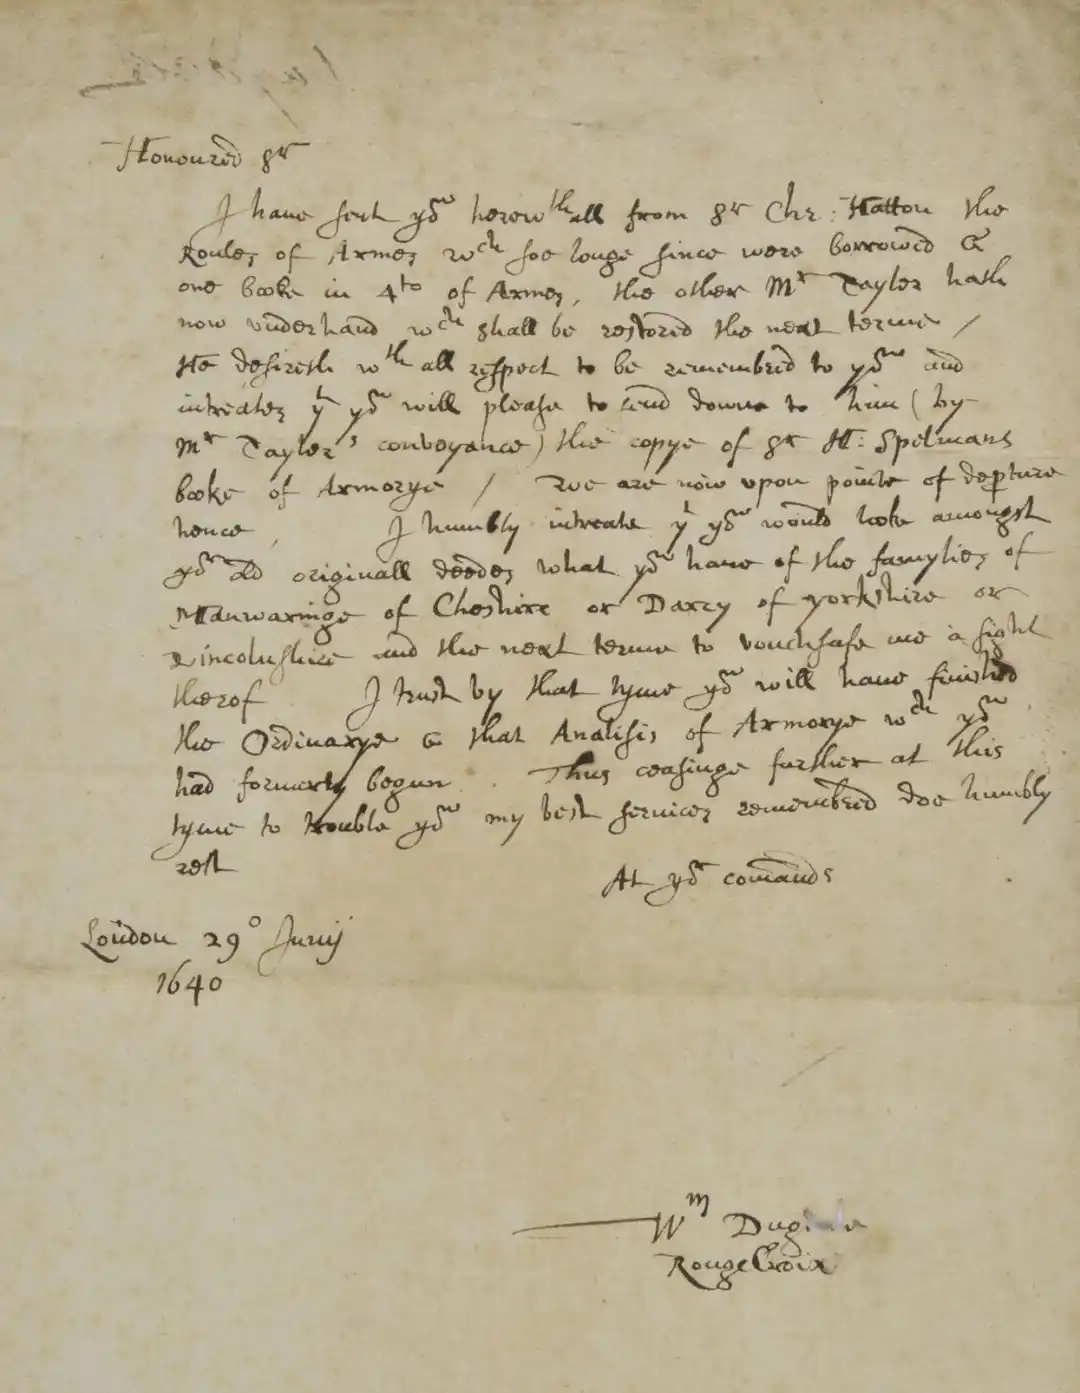 Honoured Sr
I have sent you herewthall from Sr Chr: Hatton the
Roules of Armes wch soe longe since were borrowed &
one booke in 4to of Armes, the other Mr Tayler hath
now underhand wch shall be restored the next terme /
He desireth wth all respect to be remembred to you and
intreates yt you will please to send downe to him (by
Mr Tayler's conveyance) the copye of Sr H: Spelmans
booke of Armorye / We are now upon pointe of deperture
hence, I humbly intreate yt you would looke amongst
your old originall deedes what you have of the famylies of
Manwaringe of Cheshire or Darcy of Yorkshire or
Lincolnshire and the next terme to vouchsafe me a sight
therof I trust by that tyme you will have finished
the Ordinarye & that Analisis of Armorye wch you
had formerly begun. Thus ceasinge further at this
tyme to trouble you my best services remembred doe humbly
rest
At your comands
London 29o Junij
1640
Wm
Rouge Croix